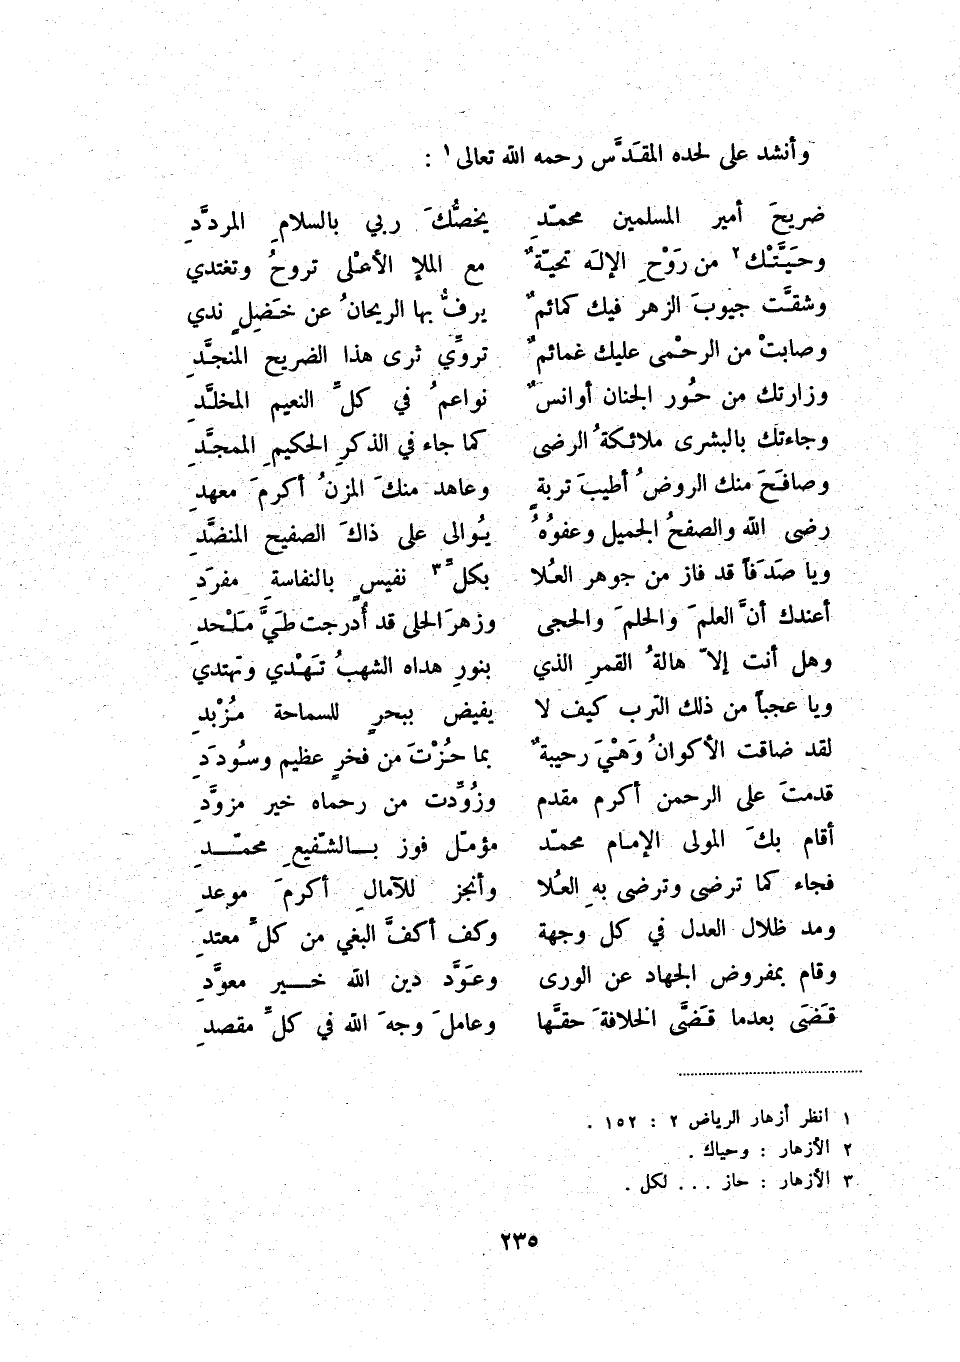 وأنشد على لحده المقدَّس رحمه الله تعالى ١ :
ضريحَ أمير المسلمين محمّدِ يخصُّكَ ربي بالسلامِ المردَّدِ
وحَيَّتْك ٢ من رَوْحِ الإلَه تحيّةٌ مع الملإ الأعْلى تروحُ وتغتدي
وشقَّت جيوبَ الزهر فيك كمائمٌ يرفُّ بها الريحانُ عن خَضَلٍ ندي
وصابتْ من الرحْمى عليك غمائمٌ تروِّي ثرى هذا الضريح المنجَّدِ
وزارتك من حُور الجنان أوانسٌ نواعمُ في كلِّ النعيم المخلَّدِ
وجاءتك بالبشرى ملائكةُ الرضى كما جاء في الذكرِ الحكيمِ الممجَّدِ
وصافَحَ منك الروضُ أطيبَ تربةٍ وعاهد منكَ المزنُ أكرمَ معهدِ
رضى الله والصفحُ الجميل وعفوُهُ يُوالى على ذاكَ الصفيح المنضَّدِ
ويا صَدَفاً قد فاز من جوهر العُلا بكلِّ ٣ نفيسٍ بالنفاسةِ مفرَدِ
أعندك أنَّ العلمَ والحلمَ والحجى وزهرَ الحلى قد أُدرجت طَيَّ مَلْحدِ
وهل أنت إلاّ هالةُ القمرِ الذي بنورِ هداه الشهبُ تَهْدي وتهتدي
ويا عجباً من ذلك الترب كيف لا يفيض ببحرٍ للسماحة مُزْبدِ
لقد ضاقت الأكوانُ وَهْيَ رحيبةٌ بما حُزْتَ من فخرٍ عظيم وسُودَدِ
قدمتَ على الرحمن أكرم مقدم وزُوِّدت من رحماه خير مزوَّدِ
أقام بكَ المولى الإمام محمّد مؤمّل فوز بـالشّفيعِ محمّـدِ
فجاء كما ترضى وترضى بهِ العُلا وأنجز للآمالِ أكرمَ موعدِ
ومد ظلال العدل في كل وجهة وكف أكفَّ البغي من كلِّ معتدِ
وقام بمفروض الجهاد عن الورى وعَوَّد دين الله خـير معوَّدِ
قَضَى بعدما قَضَّى الخلافةَ حقَّها وعاملَ وجهَ الله في كلِّ مقصدِ
١ انظر أزهار الرياض ٢ : ١٥٢ .
٢ الأزهار : وحياك .
٣ الأزهار : حاز ... لكل .
٢٣٥